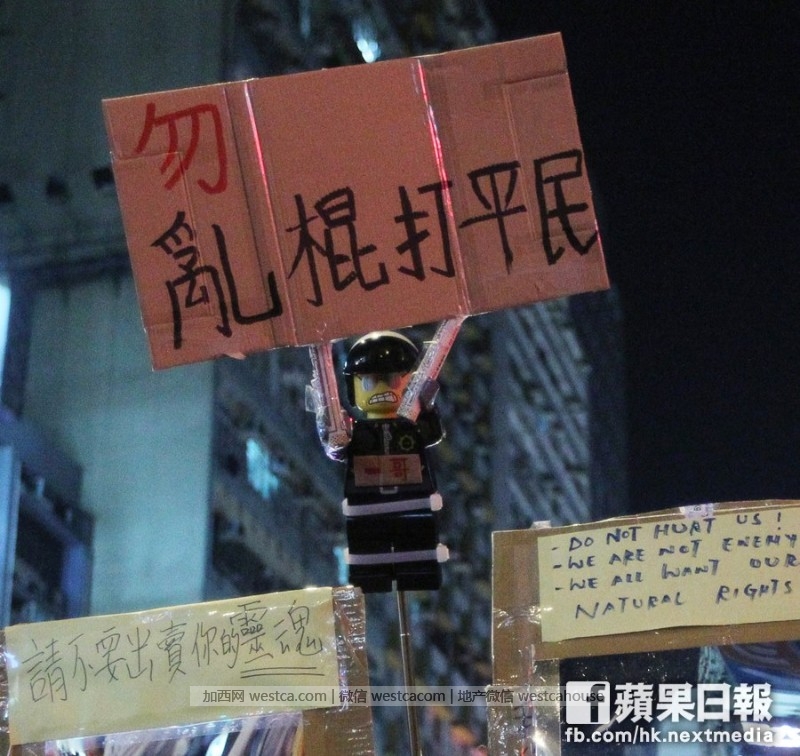 勿
亂棍打平民
一哥
- DO NOT HURT US !
- WE ARE NOT ENEMY
- WE ALL WANT OUR
NATURAL RIGHTS
請不要出賣你的靈魂
加西网 westca.com | 微信 westcacom | 地产微信 westcahouse
f 蘋果日報
fb.com/hk.nextmedia